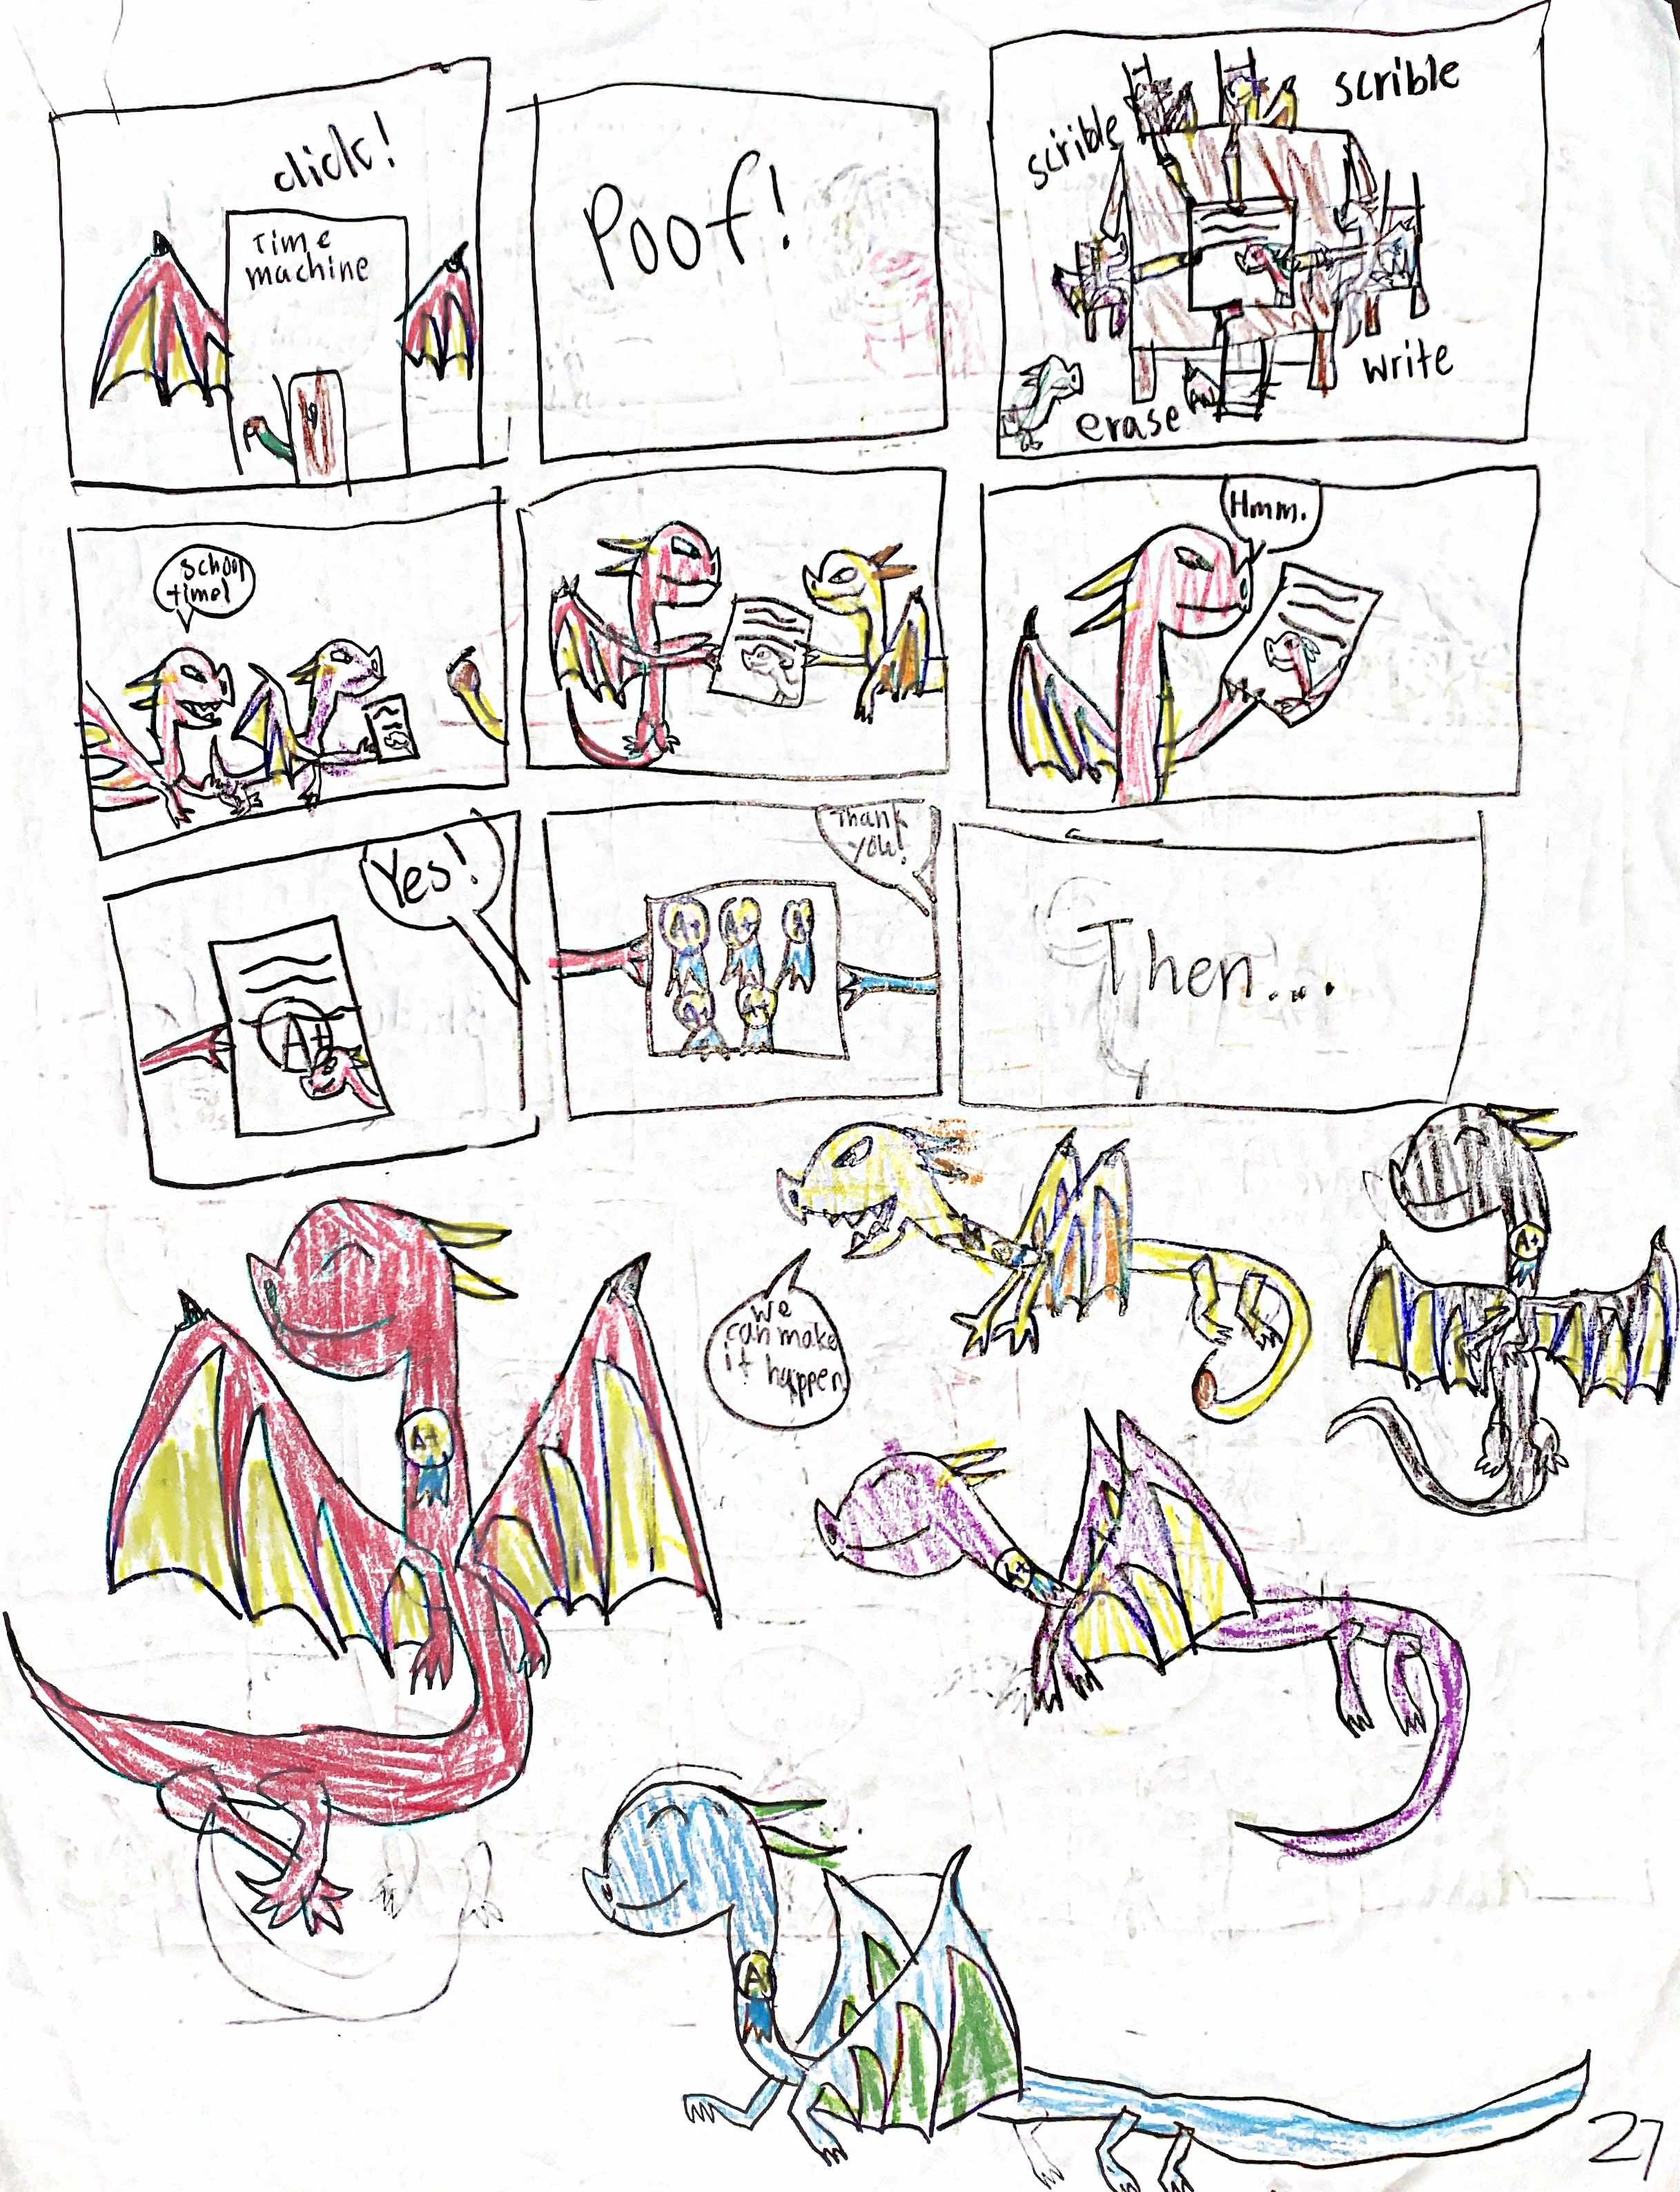 click!
Time
machine
Poof!
scrible
scrible
write
erase
School
time!
Hmm.
Yes!
A+
Thank
you!
A+ A+ A
A+ A+
Then...
A+
A+
We
can make
it happen
A+
A+
A+
27